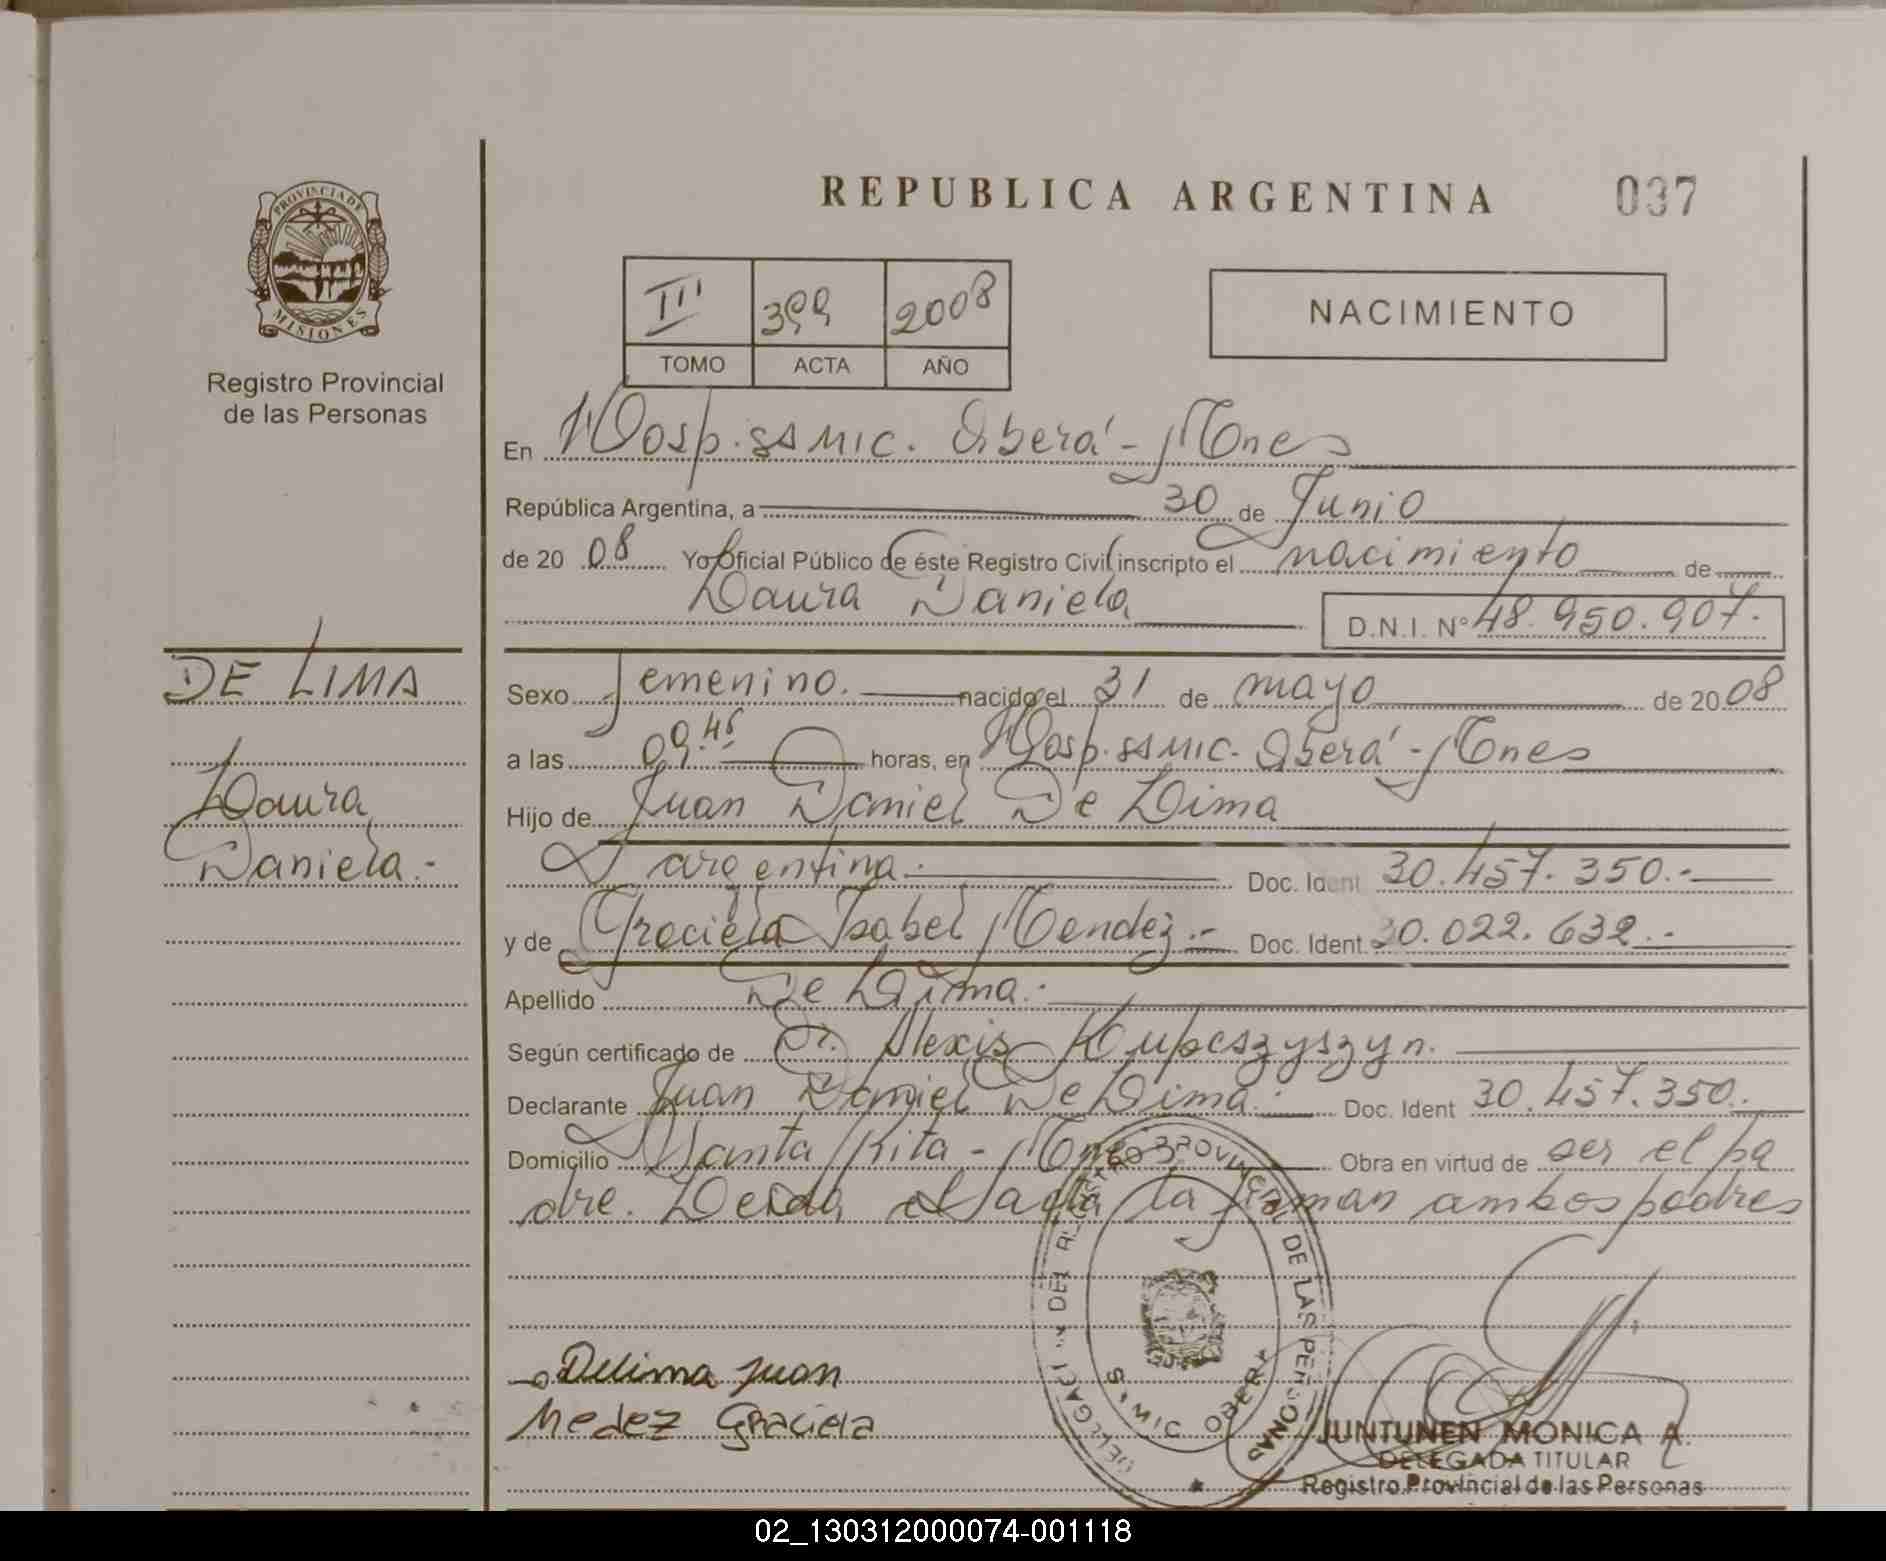 REPUBLICA ARGENTINA
037
PROVINCIA DE
MISIONES
Registro Provincial
de las Personas
III 399 2008
TOMO ACTA AÑO
NACIMIENTO
En Hosp. ss MIC. Oberá - Mnes
República Argentina, a 30 de Junio
de 2008 Yo Oficial Público de éste Registro Civil inscripto el nacimiento de
Laura Daniela
D.N.I. Nº 48.950.907.
DE LIMA
Laura
Daniela.-
Sexo Femenino. nacido el 31 de mayo de 2008
a las 09.45 horas, en Hosp. ss MIC. Oberá - Mnes
Hijo de Juan Daniel De Lima
argentina. Doc. Ident 30.457.350.-
y de Graciela Isabel Mendez.- Doc. Ident. 30.022.632.-
Apellido De Lima.-
Según certificado de Dr. Alexis Kupcszyszyn.
Declarante Juan Daniel De Lima.- Doc. Ident 30.457.350.
Domicilio Santa Rita - Mnes Obra en virtud de ser el pa
dre. Leida el acta la firman ambos padres
Delima Juan
Medez Graciela
DEL REGISTRO PROVINCIAL DE LAS PERSONAS
S. MIC OBERA
JUNTUNEN MONICA A.
DELEGADA TITULAR
Registro Provincial de las Personas
02_130312000074-001118